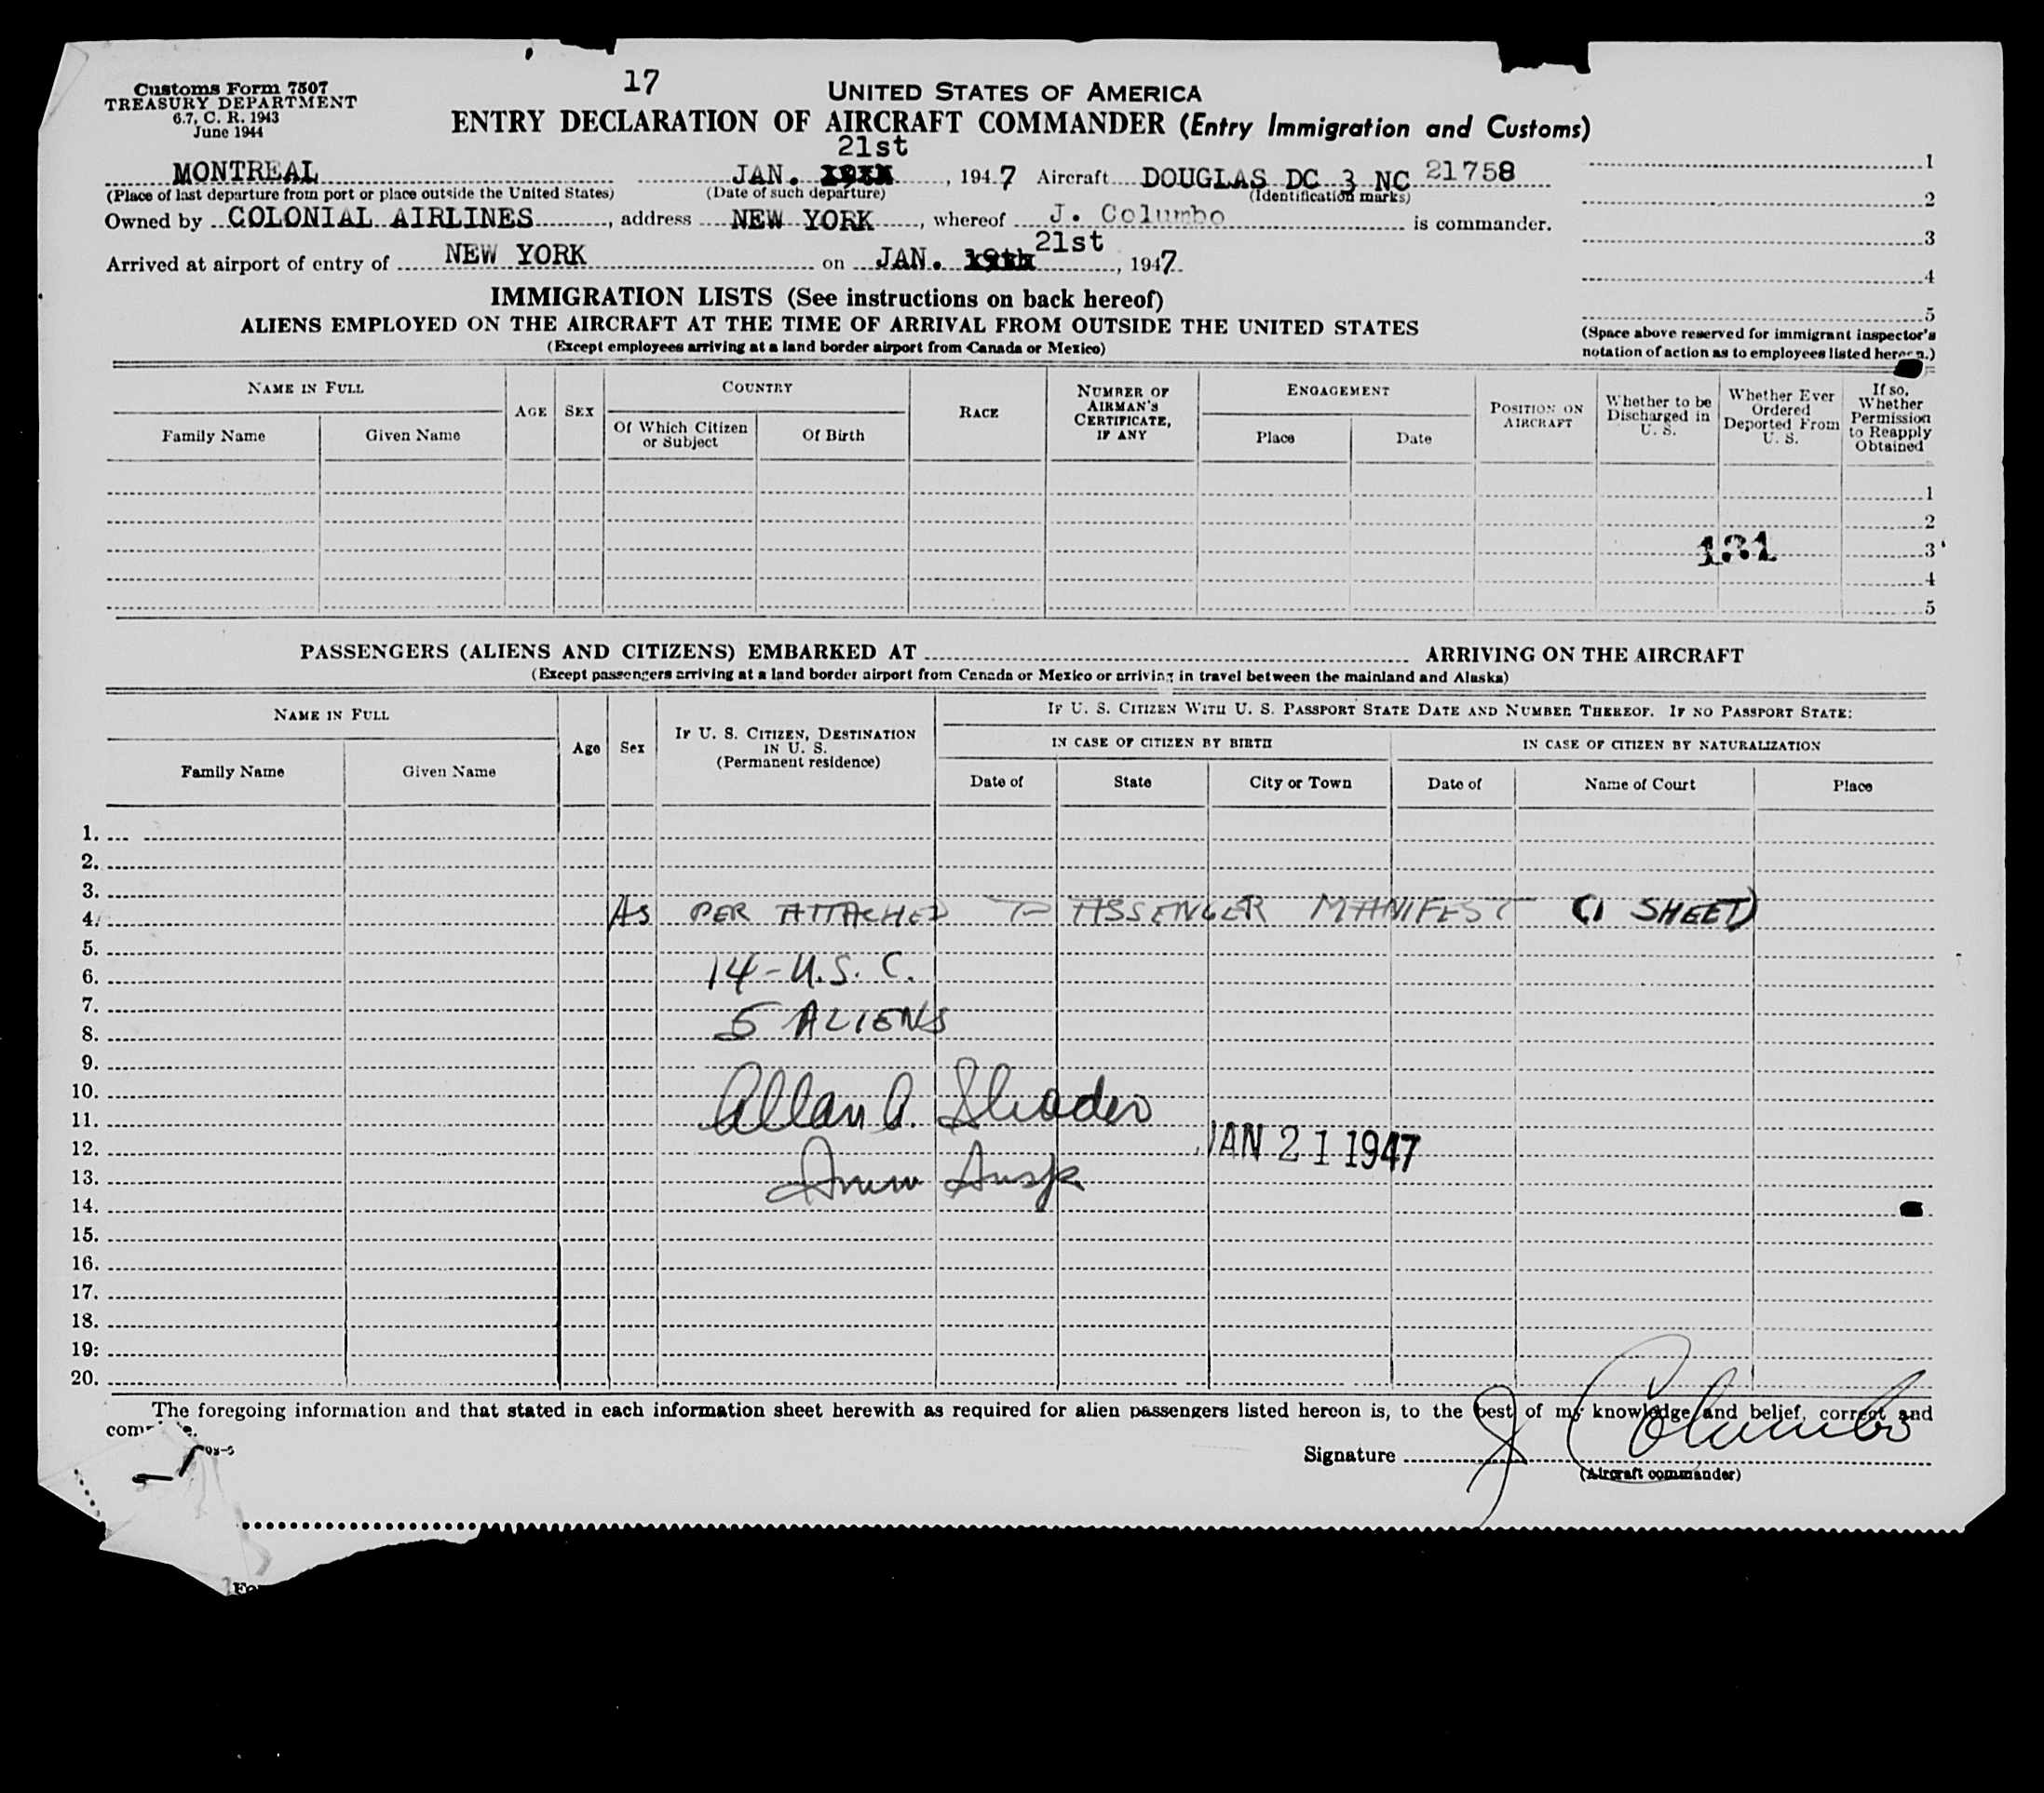 Customs Form 7507
TREASURY DEPARTMENT
6.7, C. R. 1943
June 1944
17
UNITED STATES OF AMERICA
ENTRY DECLARATION OF AIRCRAFT COMMANDER (Entry Immigration and Customs)
21st
MONTREAL JAN. , 1947 Aircraft DOUGLAS DC 3 NC 21758
(Place of last departure from port or place outside the United States) (Date of such departure) (Identification marks)
Owned by COLONIAL AIRLINES, address NEW YORK, whereof J. Columbo is commander.
21st
Arrived at airport of entry of NEW YORK on JAN. , 1947
1
2
3
4
5
(Space above reserved for immigrant inspector's
notation of action as to employees listed hereon.)
IMMIGRATION LISTS (See instructions on back hereof)
ALIENS EMPLOYED ON THE AIRCRAFT AT THE TIME OF ARRIVAL FROM OUTSIDE THE UNITED STATES
(Except employees arriving at a land border airport from Canada or Mexico)
NAME IN FULL
Family Name
Given Name
AGE
SEX
COUNTRY
Of Which Citizen
or Subject
Of Birth
RACE
NUMBER OF
AIRMAN'S
CERTIFICATE,
IF ANY
ENGAGEMENT
Place
Date
POSITION ON
AIRCRAFT
Whether to be
Discharged in
U. S.
Whether Ever
Ordered
Deported From
U. S.
If so,
Whether
Permission
to Reapply
Obtained
1
2
131
3
4
5
PASSENGERS (ALIENS AND CITIZENS) EMBARKED AT ARRIVING ON THE AIRCRAFT
(Except passengers arriving at a land border airport from Canada or Mexico or arriving in travel between the mainland and Alaska)
NAME IN FULL
Family Name
Given Name
Age
Sex
IF U. S. CITIZEN, DESTINATION
IN U. S.
(Permanent residence)
IF U. S. CITIZEN WITH U. S. PASSPORT STATE DATE AND NUMBER THEREOF. IF NO PASSPORT STATE:
IN CASE OF CITIZEN BY BIRTH
Date of
State
City or Town
IN CASE OF CITIZEN BY NATURALIZATION
Date of
Name of Court
Place
1.
2.
3.
4. AS PER ATTACHED PASSENGER MANIFEST (1 SHEET)
5.
6. 14-U.S.C.
7.
8. 5 ALIENS
9.
10.
11. Allan A. Shader
12. JAN 21 1947
13.
14.
15.
16.
17.
18.
19.
20.
The foregoing information and that stated in each information sheet herewith as required for alien passengers listed hereon is, to the best of my knowledge and belief, correct and
Signature J Columbo
(Aircraft commander)